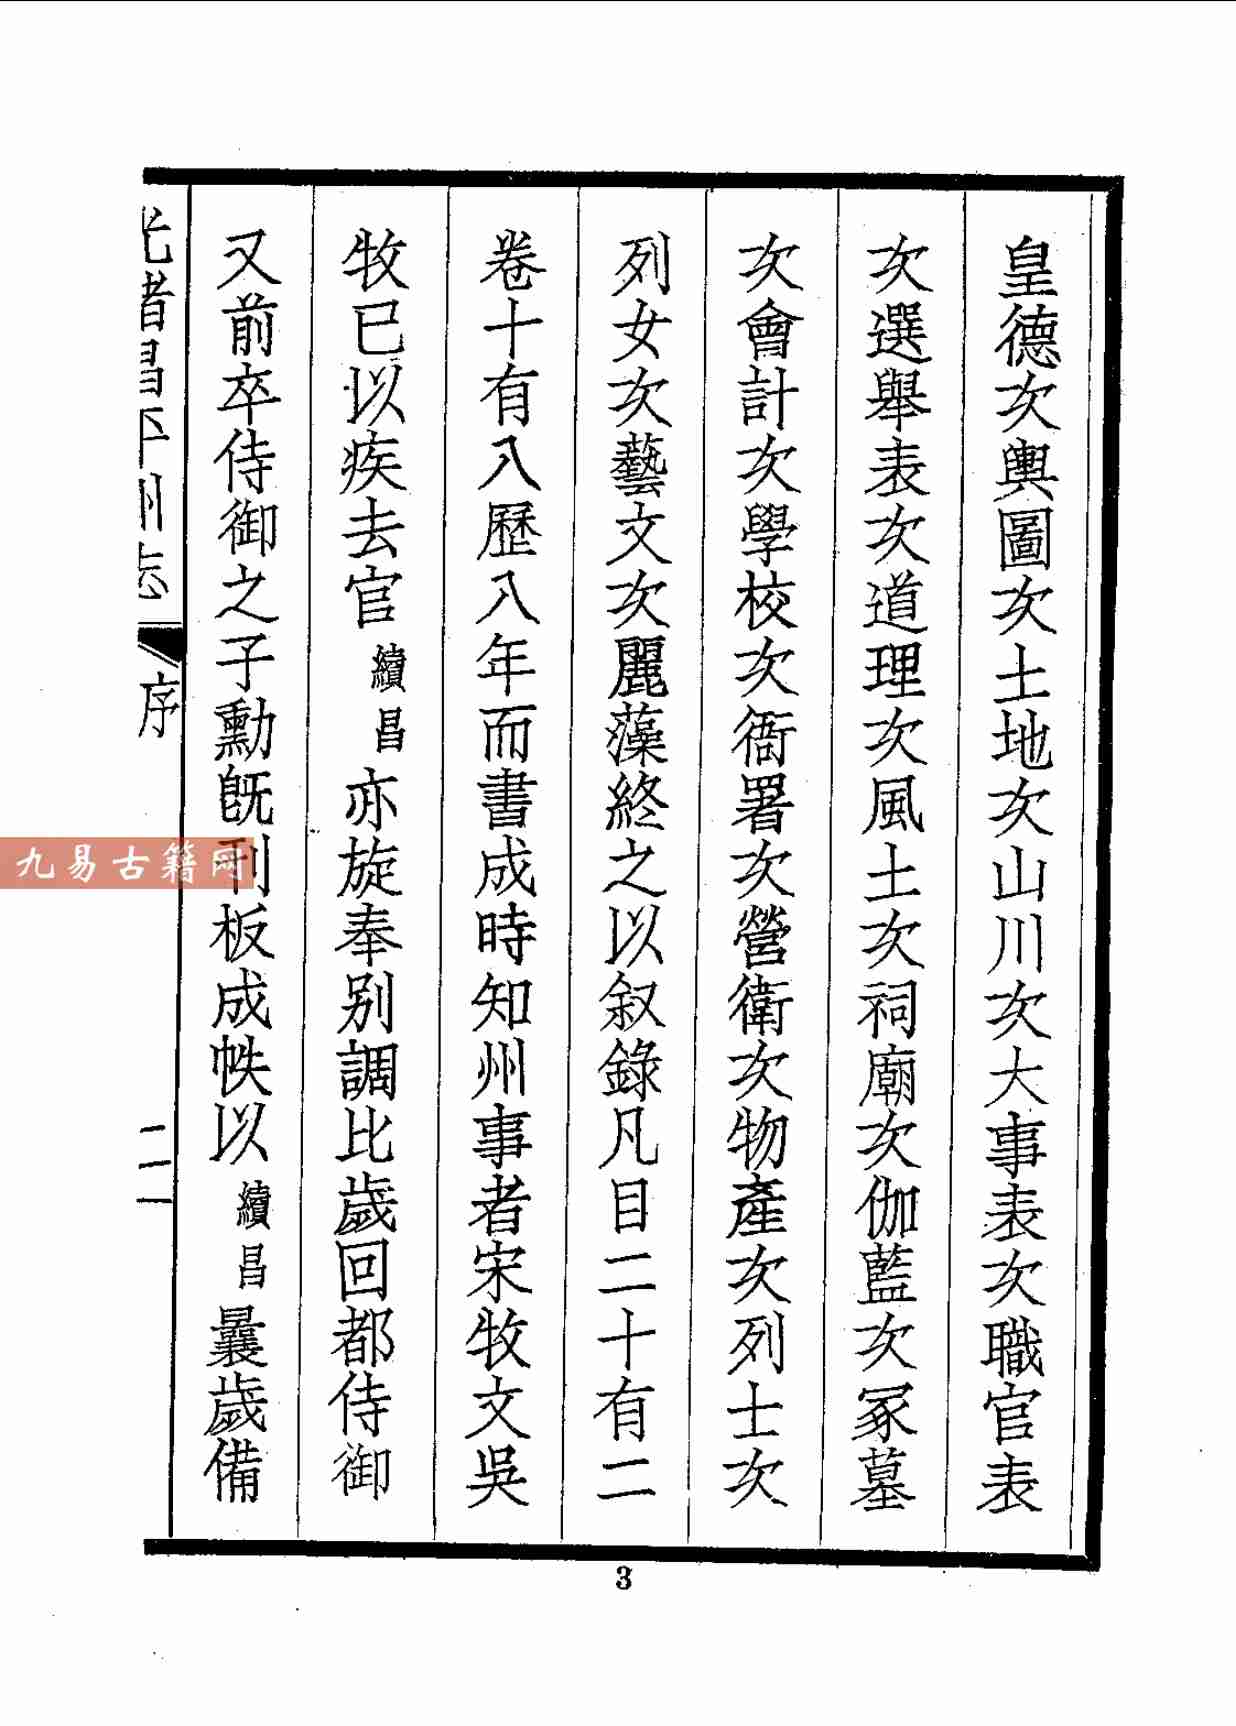 皇德次輿圖次土地次山川次大事表次職官表
次選舉表次道理次風土次祠廟次伽藍次冢墓
次會計次學校次衙署次營衛次物產次列士次
列女次藝文次麗藻終之以叙錄凡目二十有二
卷十有八歷八年而書成時知州事者宋牧文吳
牧已以疾去官續昌亦旋奉別調比歲回都侍御
又前卒侍御之子勳旣刊板成帙以續昌曩歲備
光緒昌平州志
序
二
九易古籍网
3